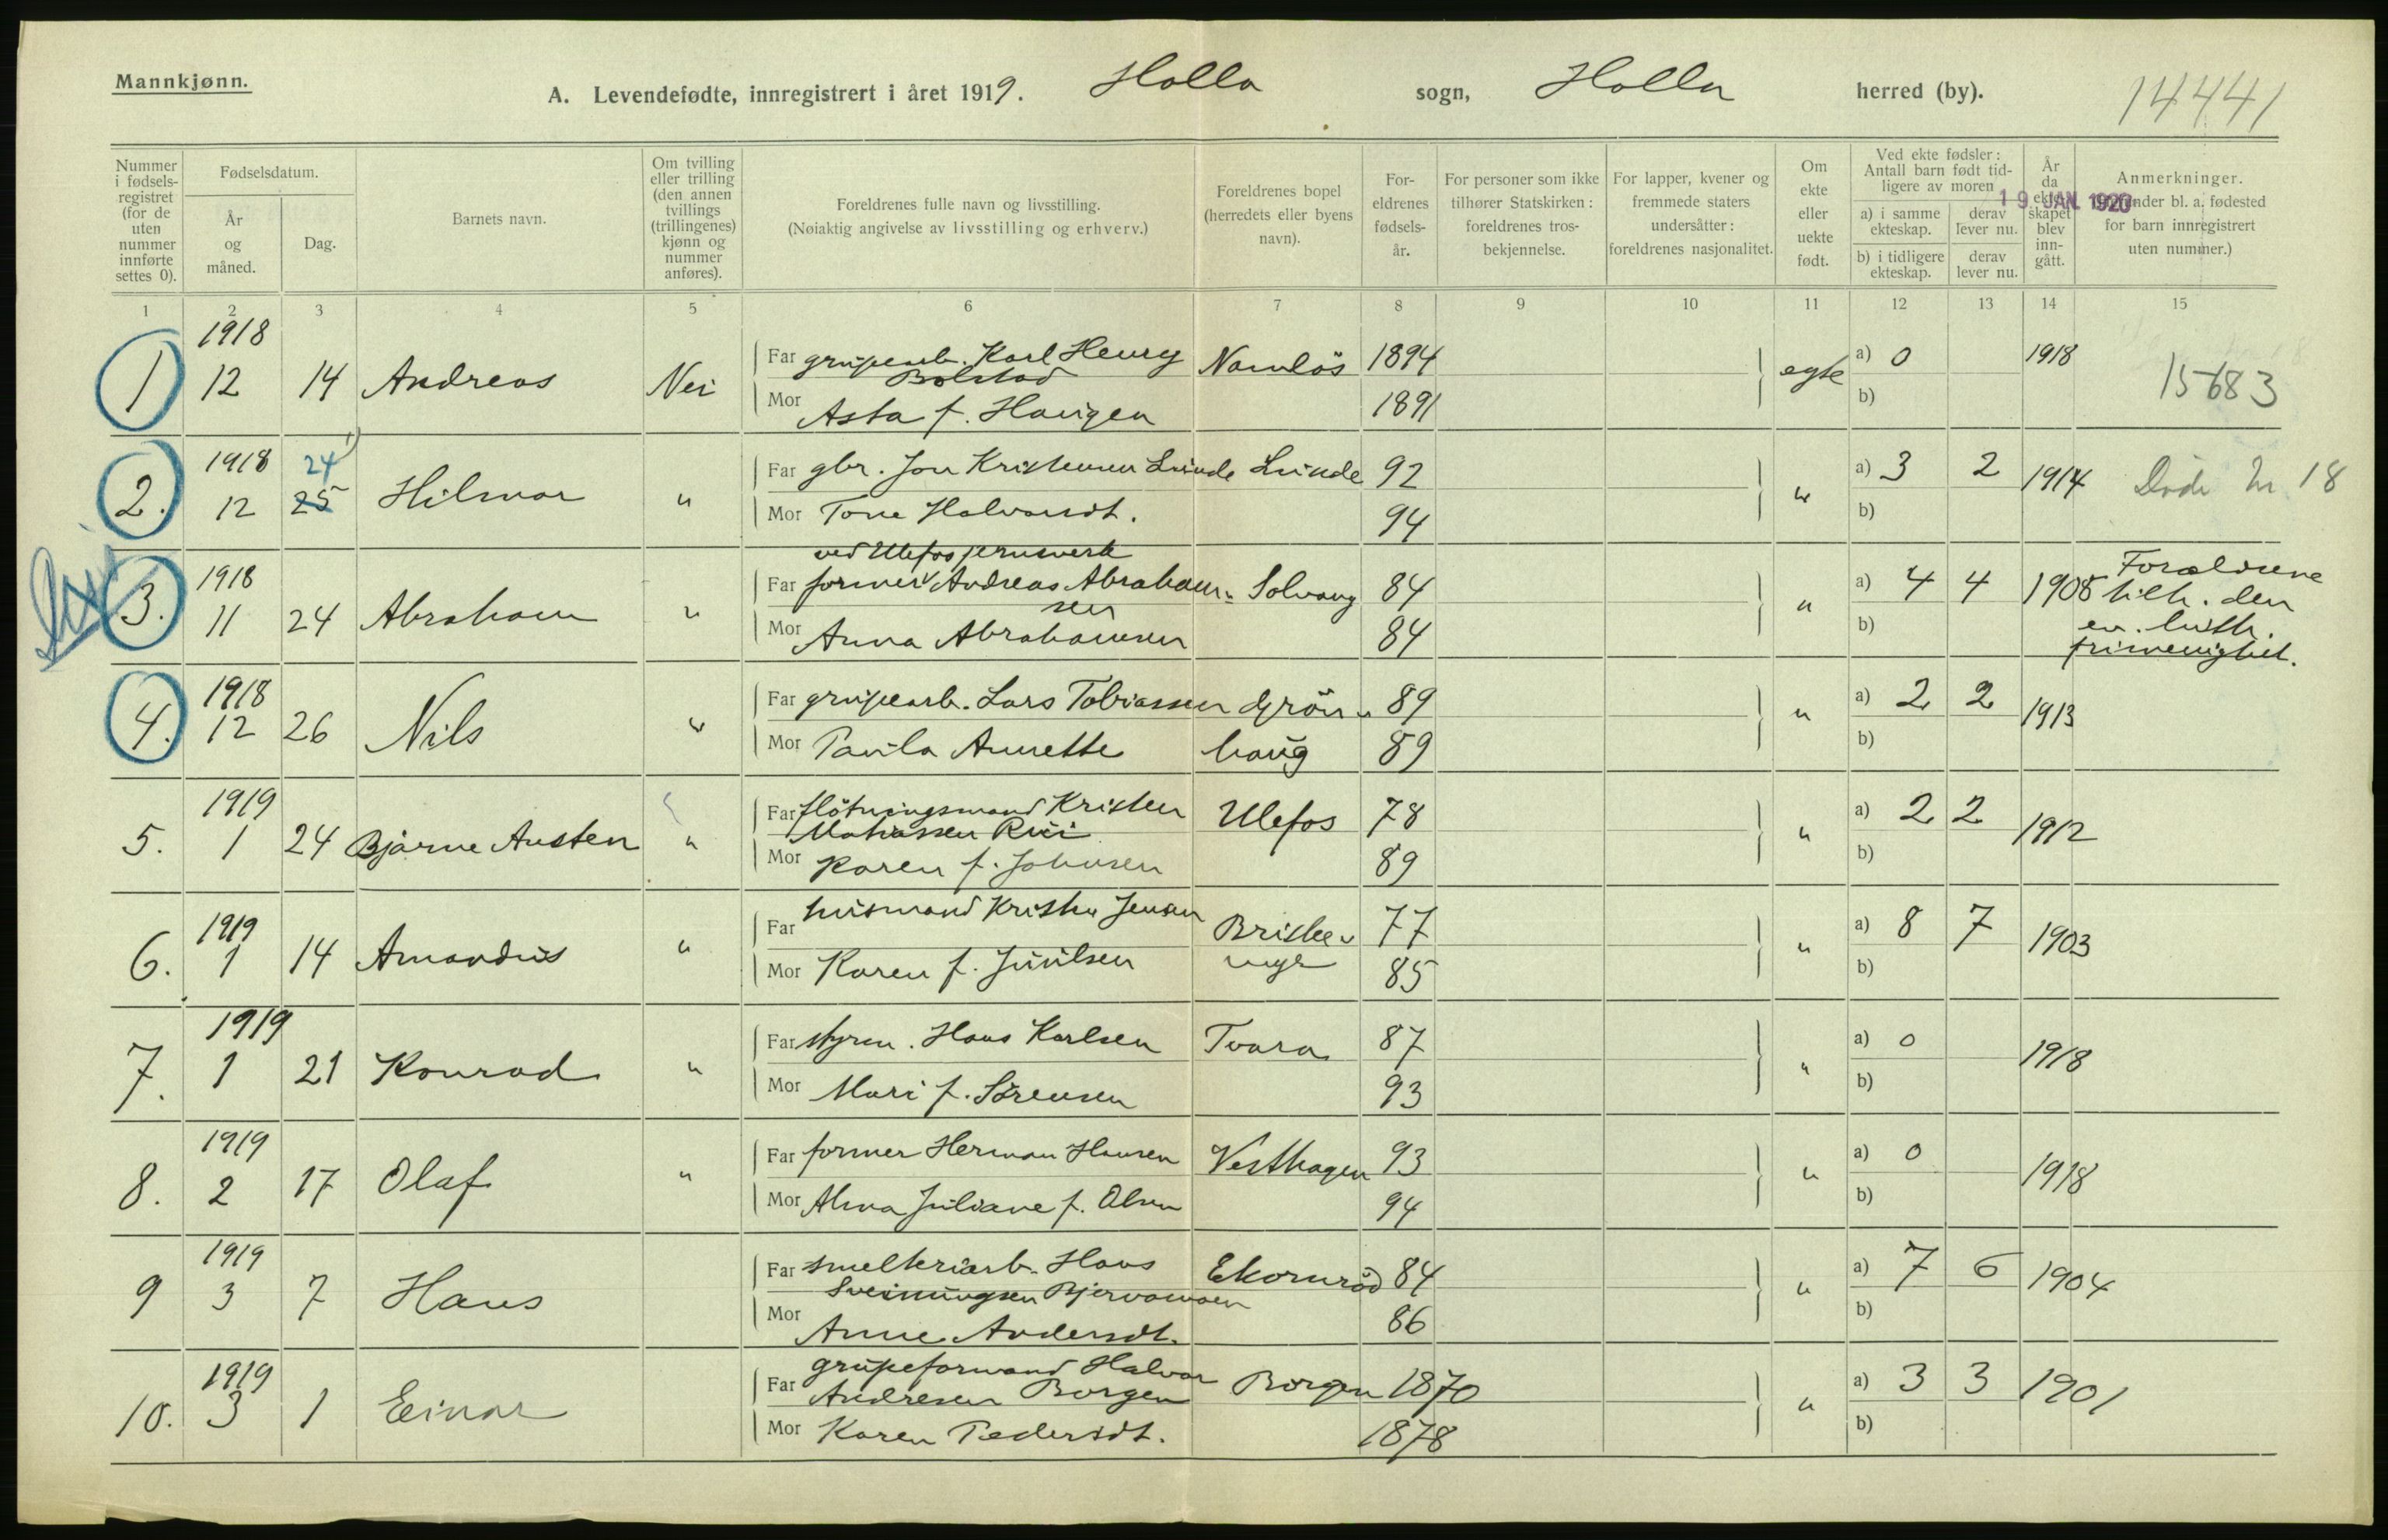 Mannkjønn.
A. Levendefødte, innregistrert i året 1919. Holla sogn, Holla herred (by). 14441
Nummer i fødsels-registret (for de uten nummer innførte settes 0).
Fødselsdatum.
År og måned.
Dag.
Barnets navn.
Om tvilling eller trilling (den annen tvillings (trillingenes) kjønn og nummer anføres).
Foreldrenes fulle navn og livsstilling.
(Nøiaktig angivelse av livsstilling og erhverv.)
Foreldrenes bopel (herredets eller byens navn).
For-eldrenes fødsels-år.
For personer som ikke tilhører Statskirken: foreldrenes tros-bekjennelse.
For lapper, kvener og fremmede staters undersåtter: foreldrenes nasjonalitet.
Om ekte eller uekte født.
Ved ekte fødsler: Antall barn født tid-ligere av moren
a) i samme ekteskap.
derav lever nu.
b) i tidligere ekteskap.
derav lever nu.
År da ekte-skapet blev inn-gått.
19. JAN. 1920
Anmerkninger.
(Herunder bl. a. fødested for barn innregistrert uten nummer.)
1 2 3 4 5 6 7 8 9 10 11 12 13 14 15
1918
1 12 14 Andreas Nei Far grubearb. Karl Henry Bolstad Namløs 1894 egte a) 0 1918 15683
Mor Asta f. Haugen 1891 b)
1918 24
2. 12 25 Hilmar " Far gbr. Jon Kristensen Lunde Lunde 92 " a) 3 2 1914 Døde Nr 18
Mor Tone Halvorsdt. 94 b)
ved Ulefos jernverk
1918
3. 11 24 Abraham " Far former Andreas Abraham-sen Solvang 84 " a) 4 4 1908 Forældrene tilh. den ev. luth. frimenighet.
Mor Anna Abrahamsen 84 b)
1918
4. 12 26 Nils " Far grubearb. Lars Tobiassen Grön- 89 " a) 2 2 1913
Mor Paula Annette haug 89 b)
1919
5. 1 24 Bjarne Austen " Far flötningsmand Kristen Mathiassen Rui Ulefos 78 " a) 2 2 1912
Mor Karen f. Johnsen 89 b)
1919
6. 1 14 Amandus " Far husmand Kristen Jensen 77 " a) 8 7 1903
Mor Karen f. Juulsen 85 b)
1919
7. 1 21 Konrad " Far styrm. Hans Karlsen Tvara 87 " a) 0 1918
Mor Mari f. Sörensen 93 b)
1919
8. 2 17 Olaf " Far former Herman Hansen Vesthagen 93 " a) 0 1918
Mor Alma Juliane f. Olsen 94 b)
1919
9 3 7 Hans Far smelteriarb. Hans Sveinungsen Bjervamoen Ekornröd 84 " a) 7 6 1904
Mor Anne Andersdt. 86 b)
1919
10. 3 1 Einar Far grubeformand Halvor Andresen Borgen Borgen 1870 " a) 3 3 1901
Mor Karen Pedersdt. 1878 b)